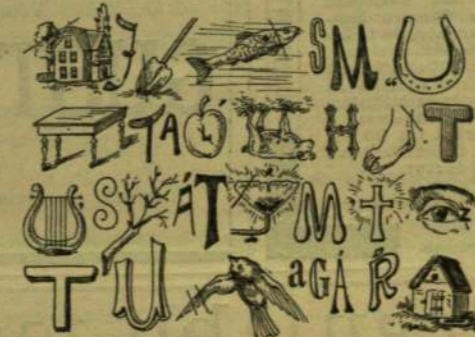 J S M „
TA H T
S ÁT M
T U aGÁ Ŕ